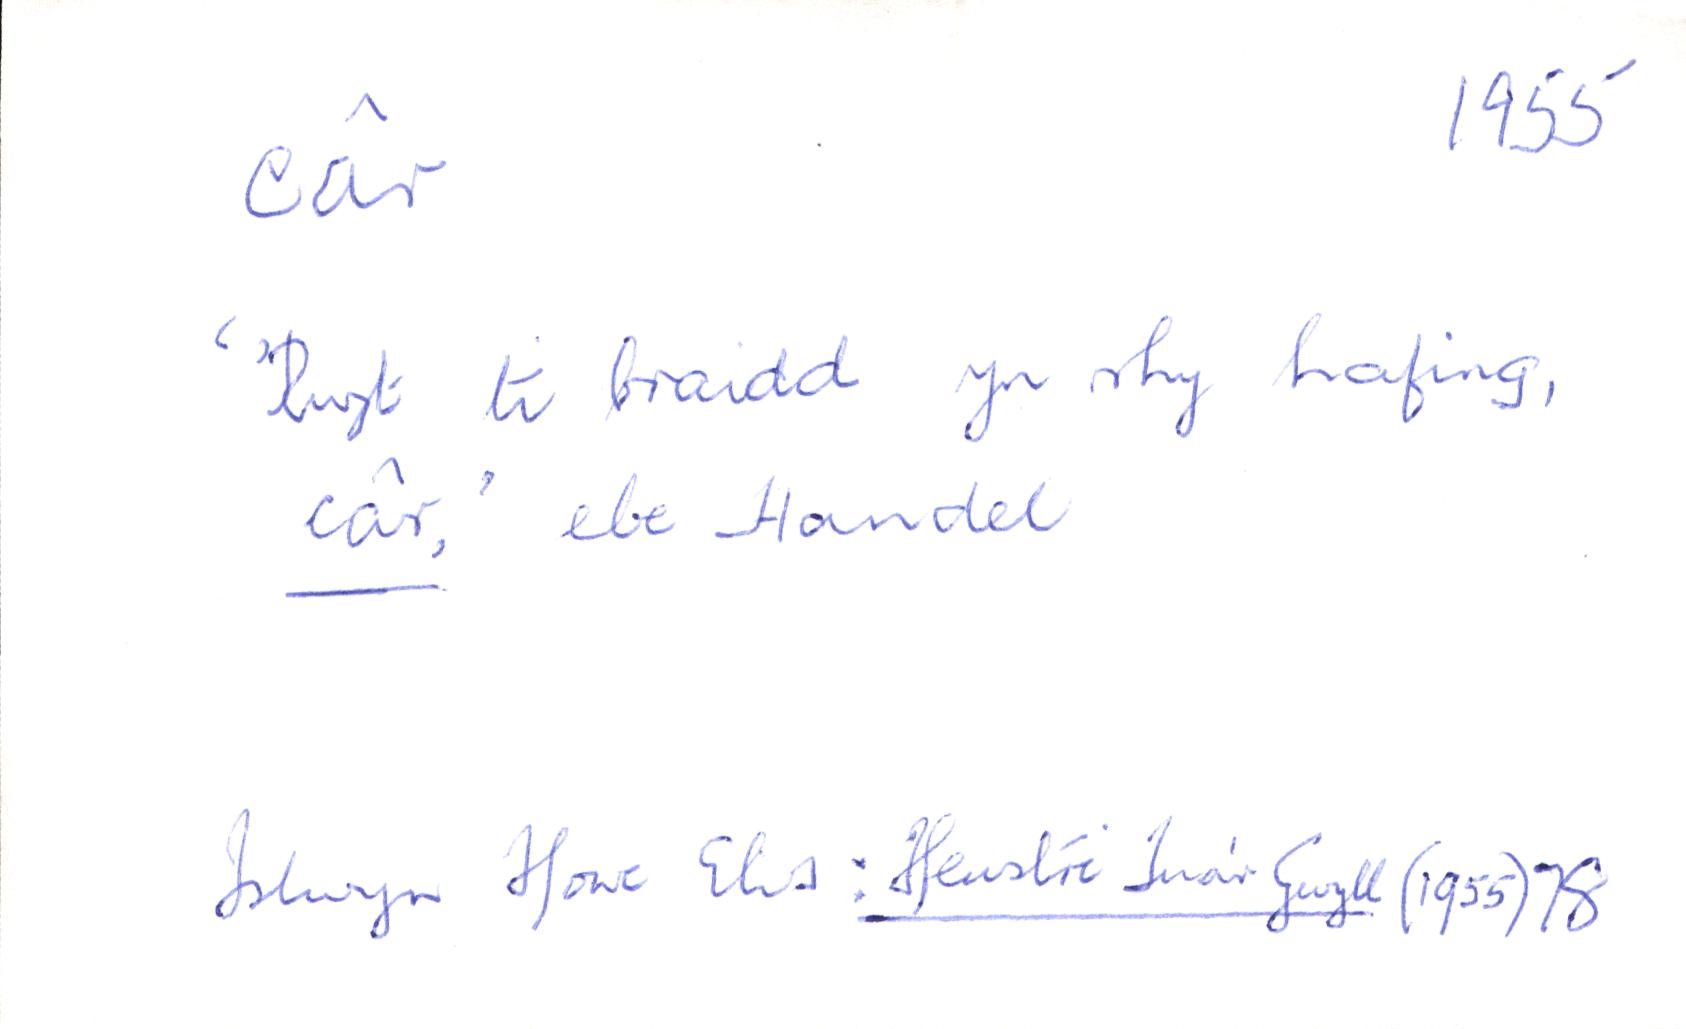 câr
1955
‘'Rwyt ti braidd yn rhy hafing,
câr,’ ebe Handel
Islwyn Ffowc Elis : Ffenestri Tua'r Gwyll (1955) 78